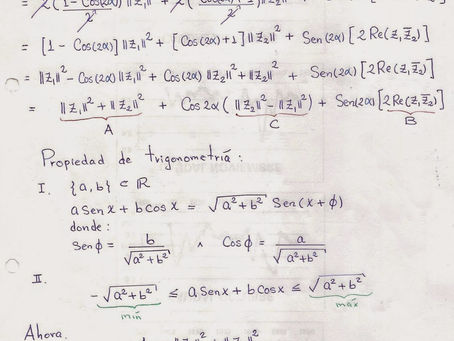 = [1 - Cos(2α)] ||z₁||² + [Cos(2α)+1] ||z₂||² + Sen(2α) [2 Re(z₁z̅₂)]
= ||z₁||² - Cos(2α) ||z₁||² + Cos(2α) ||z₂||² + ||z₂||² + Sen(2α) [2 Re(z₁z̅₂)]
= ||z₁||² + ||z₂||² + Cos 2α (||z₂||² - ||z₁||²) + Sen(2α) [2 Re(z₁z̅₂)]
A C B
Propiedad de trigonometría :
I. {a,b} ⊂ ℝ
a Sen x + b Cos x = √(a²+b²) Sen (x+ϕ)
donde :
Senϕ = b/√(a²+b²) ∧ Cosϕ = a/√(a²+b²)
II.
-√(a²+b²) ≤ a Sen x + b Cos x ≤ √(a²+b²)
mín máx
Ahora.